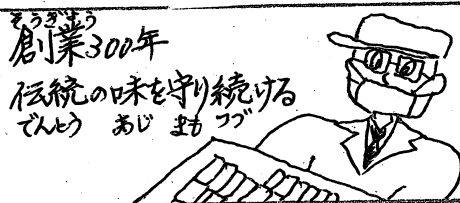 そうぎょう
創業300年
伝統の味を守り続ける
でんとう あじ まも つづ